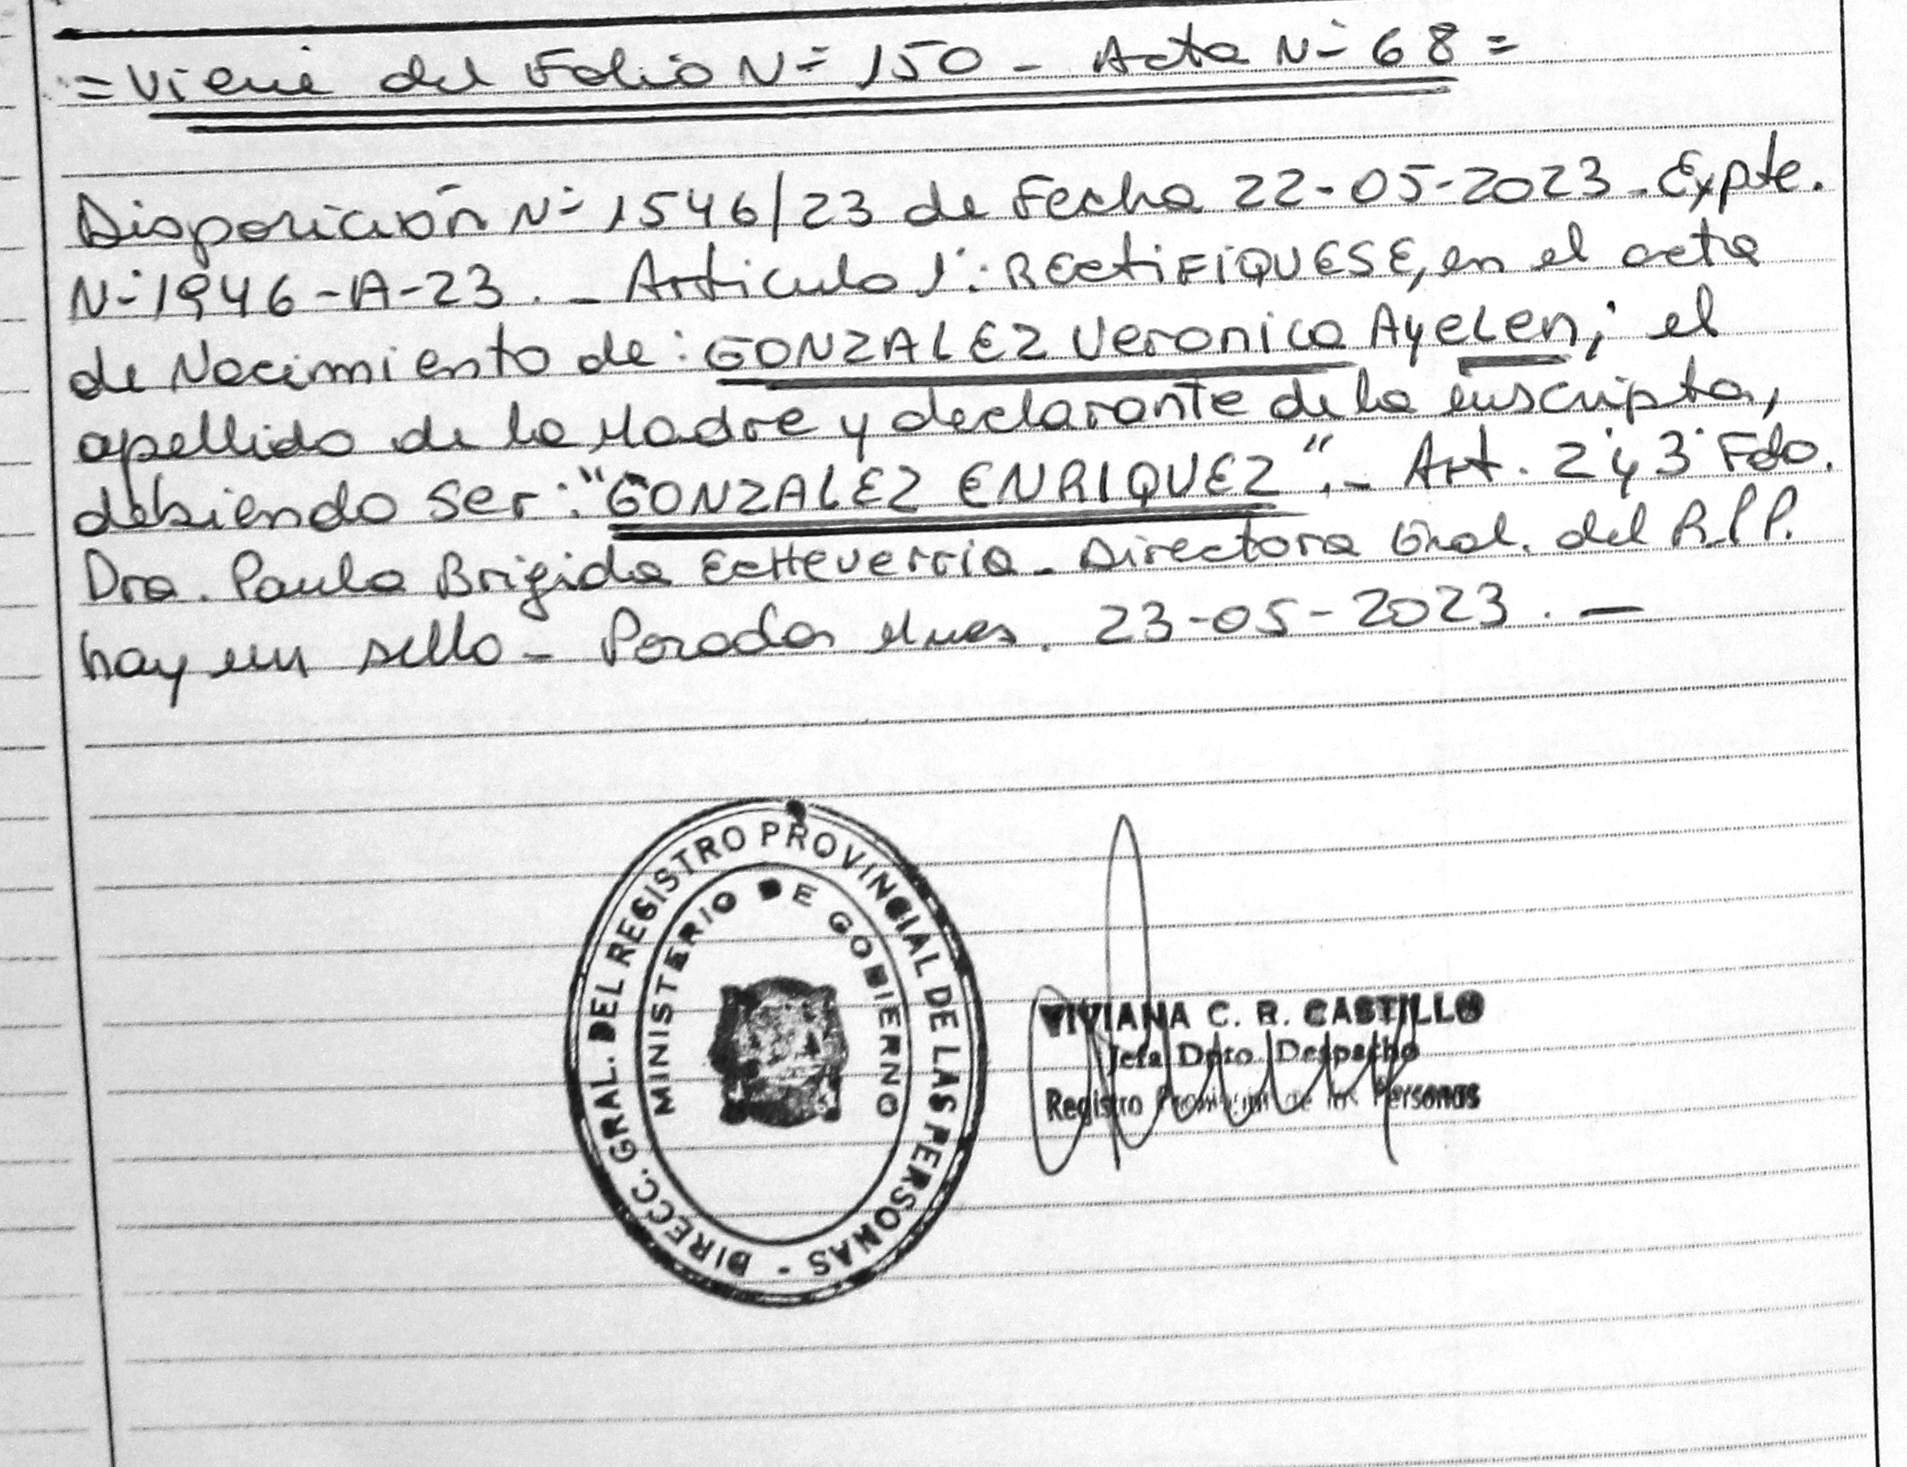 = Viene del Folio Nº 150 - Acta Nº 68 =
Disposición Nº 1546/23 de Fecha 22-05-2023. Expte.
Nº 1946-A-23. - Artículo 1º: RECTIFIQUESE, en el acta
de Nacimiento de: GONZALEZ Veronica Ayelen; el
apellido de la Madre y declarante de la inscripta,
debiendo ser: "GONZALEZ ENRIQUEZ". - Art. 2º y 3º Fdo.
Dra. Paula Brigida Etcheverria - Directora Gral. del R.P.P.
hay un sello - Posadas Mnes. 23-05-2023. —
DIRECC. GRAL. DEL REGISTRO PROVINCIAL DE LAS PERSONAS -
MINISTERIO DE GOBIERNO
VIVIANA C. R. CASTILLO
Jefa Dpto. Despacho
Registro Provincial de las Personas